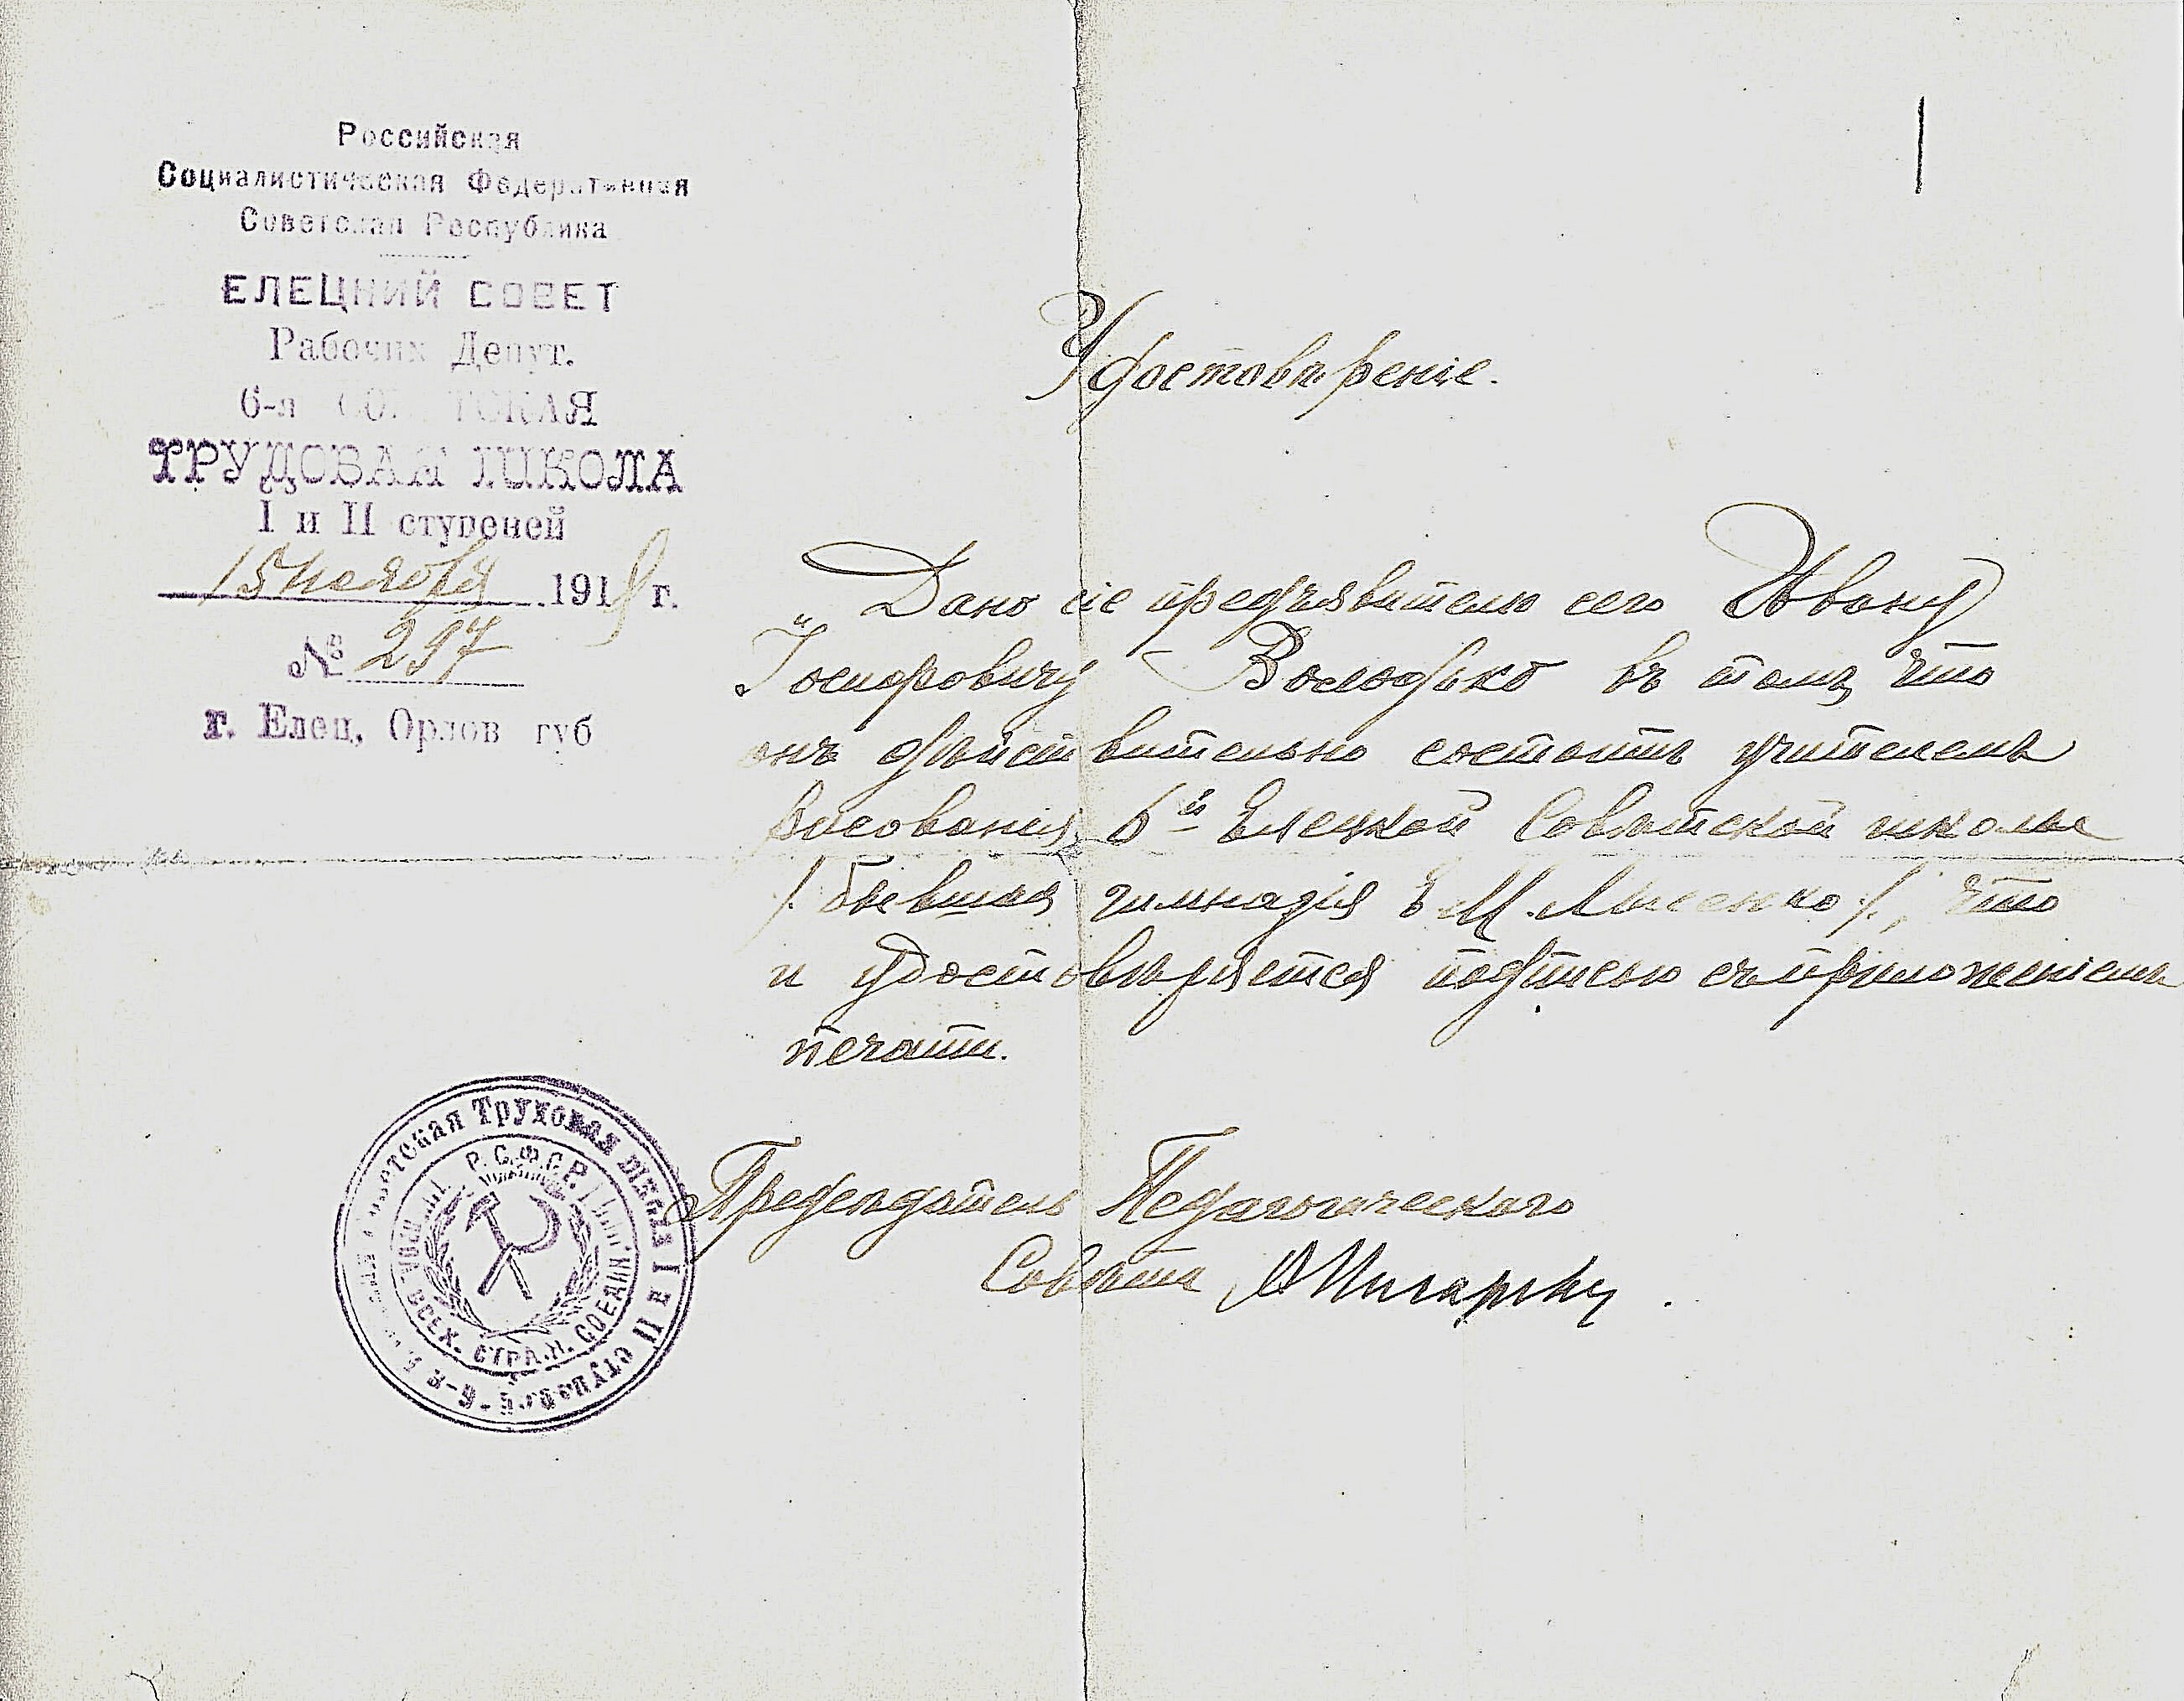 Российская
Социалистическая Федеративная
Советская Республика
ЕЛЕЦКИЙ СОВЕТ
Рабочих Депут.
6-я СОВЕТСКАЯ
ТРУДОВАЯ ШКОЛА
I и II ступеней
15 ноября 1919 г.
№ 297
г. Елец, Орлов губ
Удостовѣреніе.
Дано сіе предъявителю сего Ивану
Іосифовичу Володько въ томъ, что
онъ дѣйствительно состоитъ учителемъ
рисованія 6й Елецкой Совѣтской школы
/бывшая гимназія Е М. Лысенко/, что
и удостовѣряется подписью съ приложеніемъ
печати.
Предсѣдатель Педагогическаго
Совѣта
Советская Трудовая школа I и II ступеней - 6-я
Р.С.Ф.С.Р. ВСЕХ. СТРАН. СОЕДИН